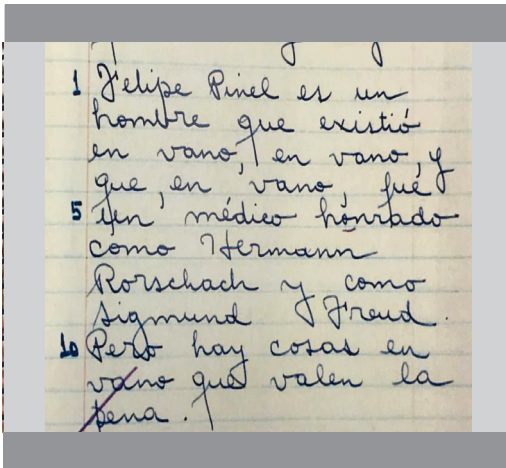 1 Felipe Pinel es un
hombre que existió
en vano, en vano, y
que, en vano, fué
5 un médico honrado
como Hermann
Rorschach y como
Sigmund Freud.
10 Pero hay cosas en
vano que valen la
pena.